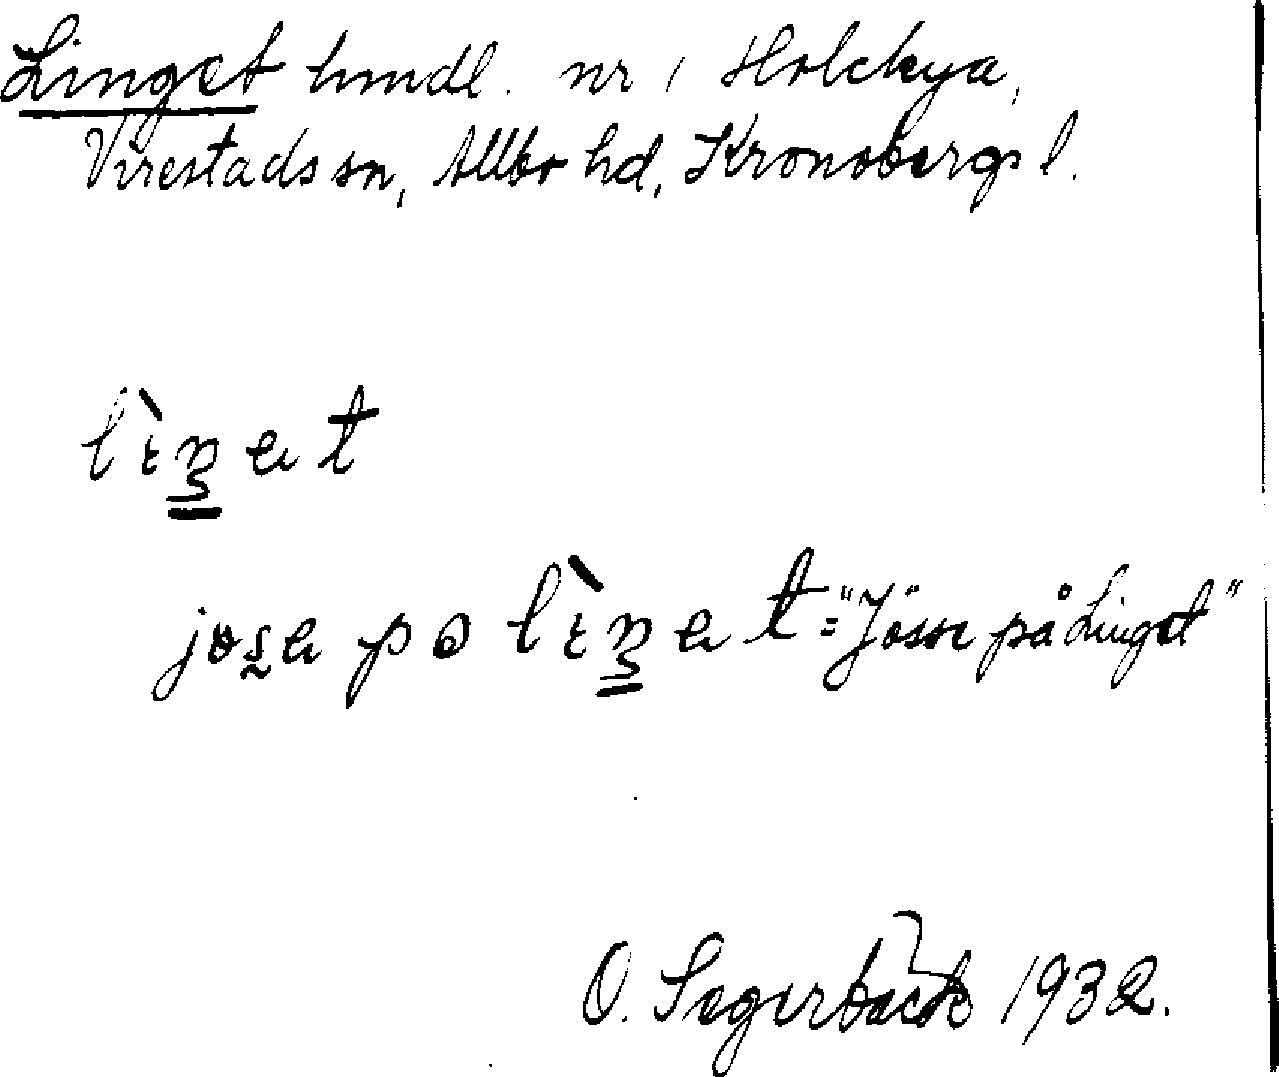 Linget hmdl. nr 1 Holckya,
Virestads sn, Allbo hd, Kronobergs l.
lìŋat
jøsa po lìŋat = "Jösse på Linget"
O. Segerbäck 1932.